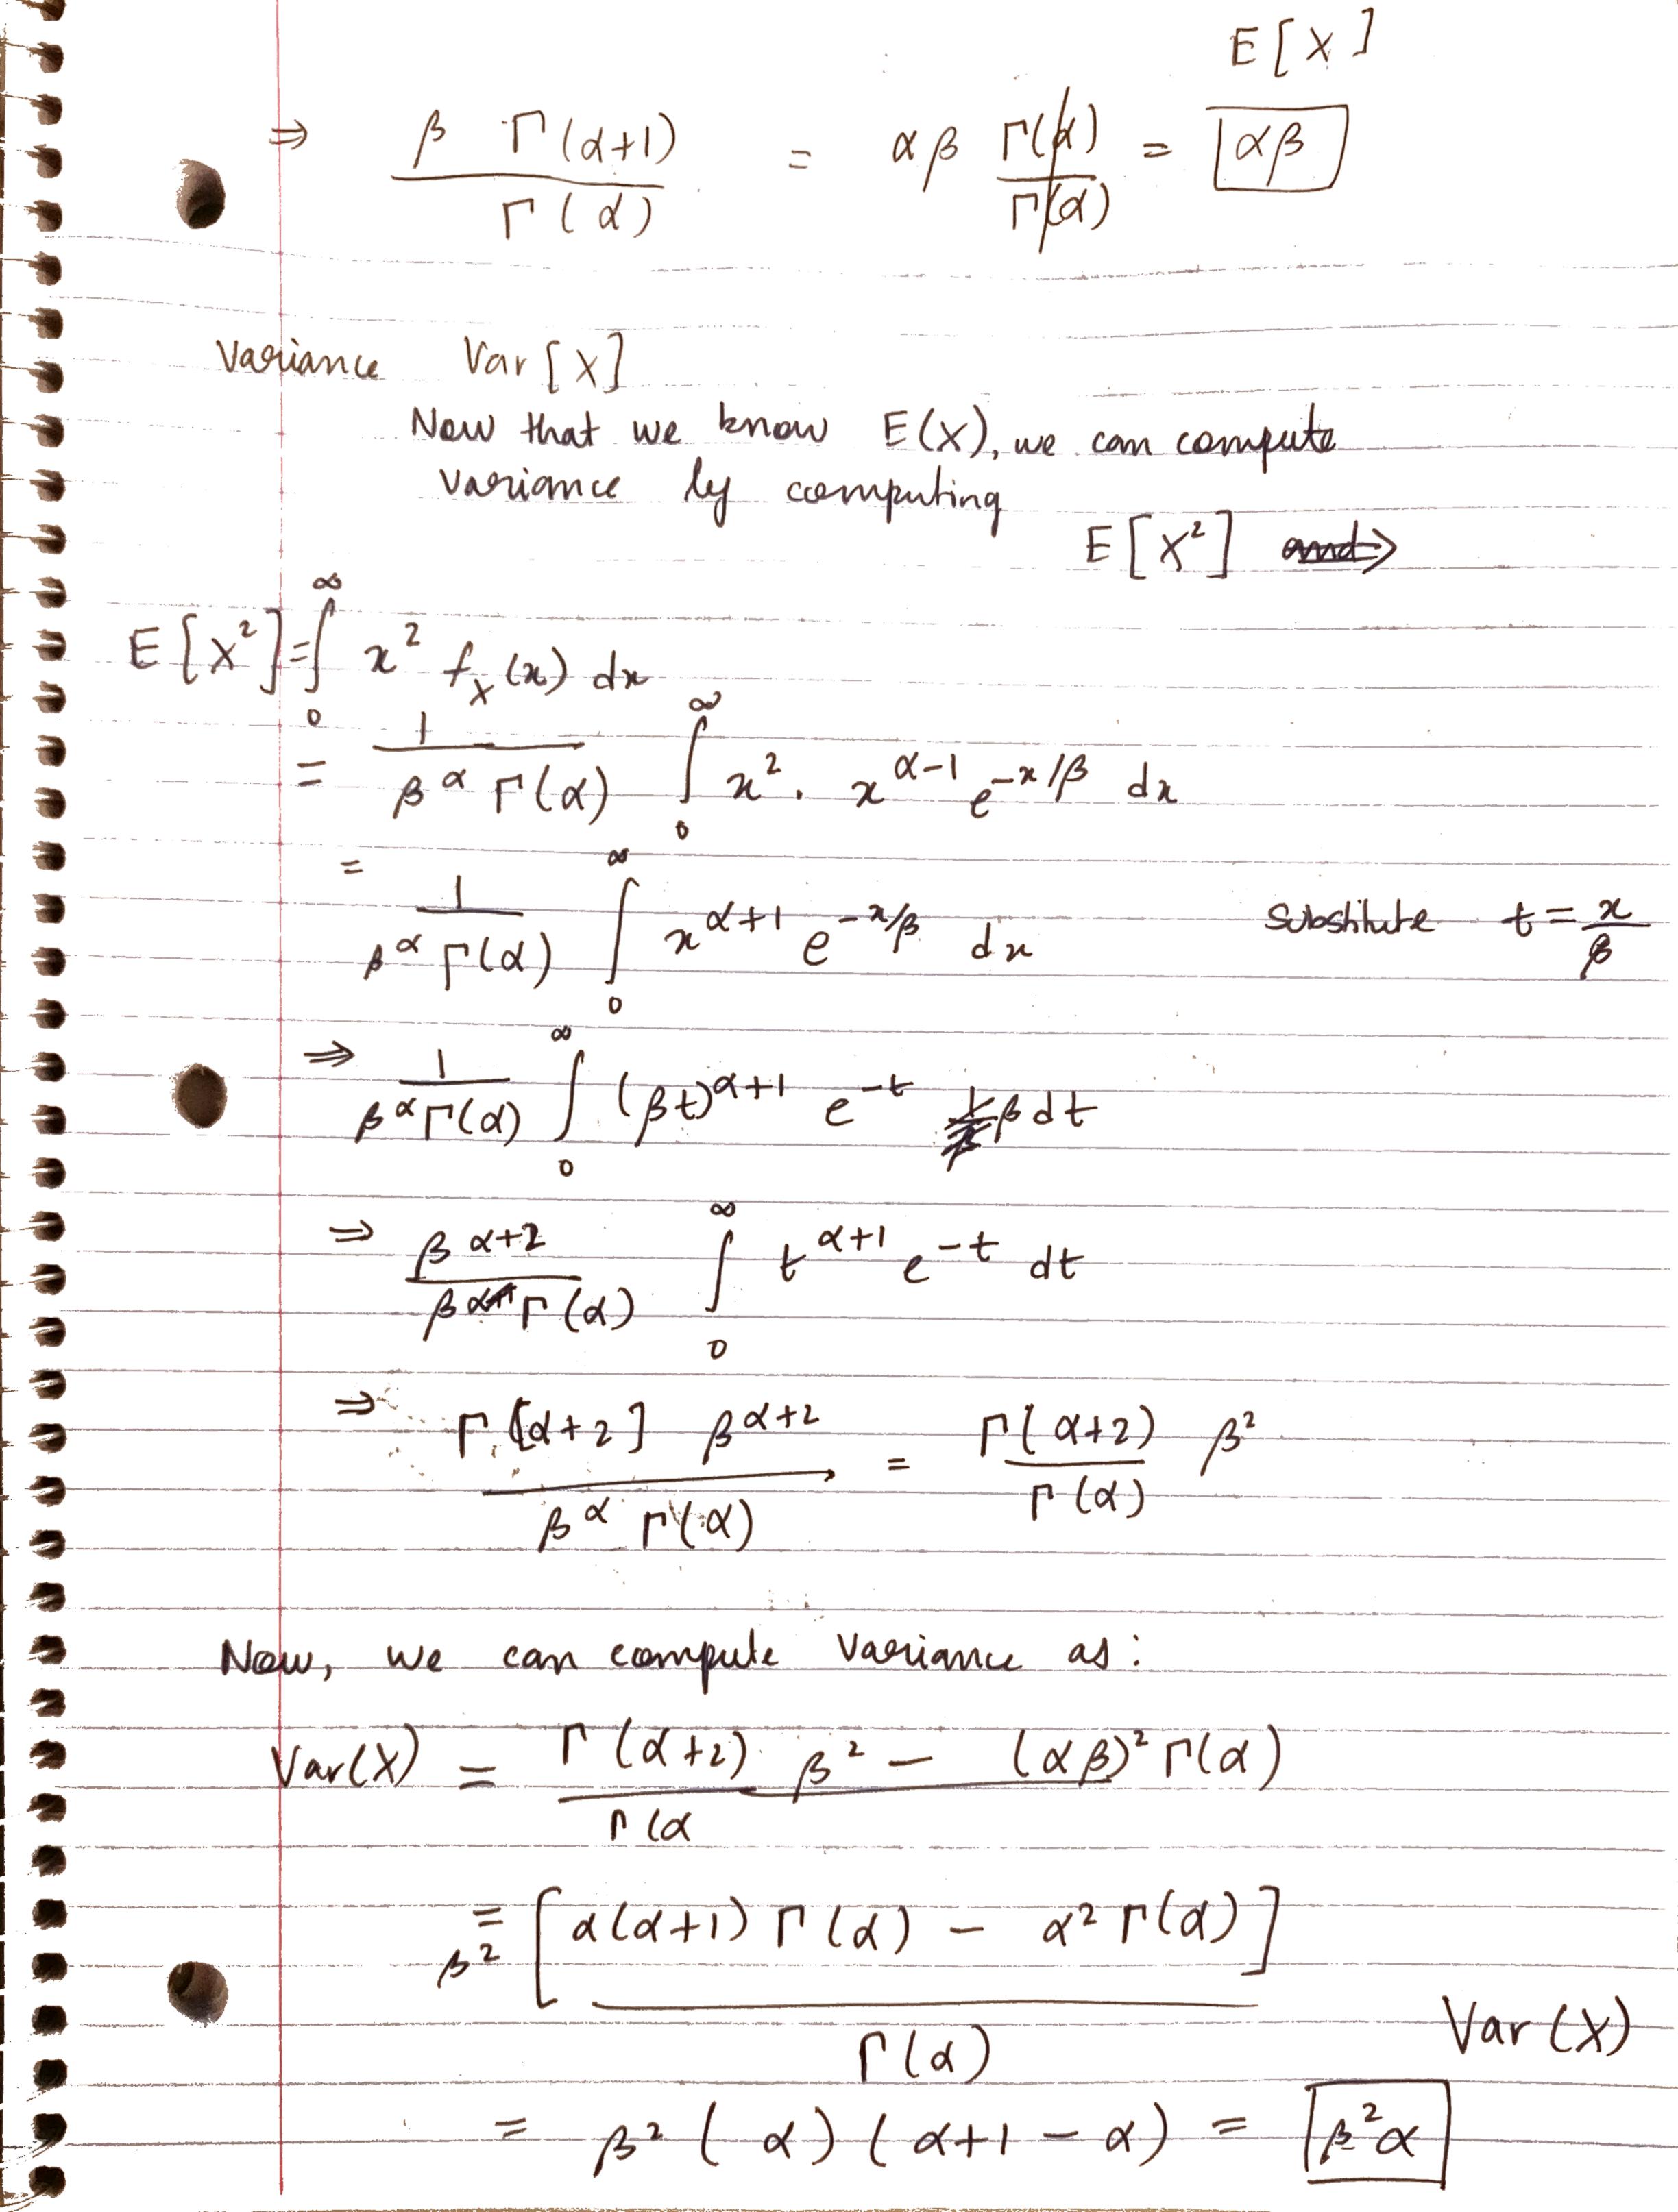 E[X]
⇒ β Γ(α+1) / Γ(α) = αβ Γ(α) / Γ(α) = αβ
Variance Var[X]
Now that we know E(X), we can compute
variance by computing
E[X²] and→
E[X²] = ∫₀^∞ x² f_X(x) dx
= 1 / (β^α Γ(α)) ∫₀^∞ x² · x^(α-1) e^(-x/β) dx
= 1 / (β^α Γ(α)) ∫₀^∞ x^(α+1) e^(-x/β) dx Substitute t = x/β
⇒ 1 / (β^α Γ(α)) ∫₀^∞ (βt)^(α+1) e^(-t) β dt
⇒ β^(α+2) / (β^α Γ(α)) ∫₀^∞ t^(α+1) e^(-t) dt
⇒ Γ[α+2] β^(α+2) / (β^α Γ(α)) = Γ(α+2) / Γ(α) β²
Now, we can compute variance as:
Var(X) = Γ(α+2) β² - (αβ)² Γ(α) / Γ(α
= β² [α(α+1) Γ(α) - α² Γ(α)] / Γ(α)
Var(X)
= β² (α) (α+1-α) = β²α